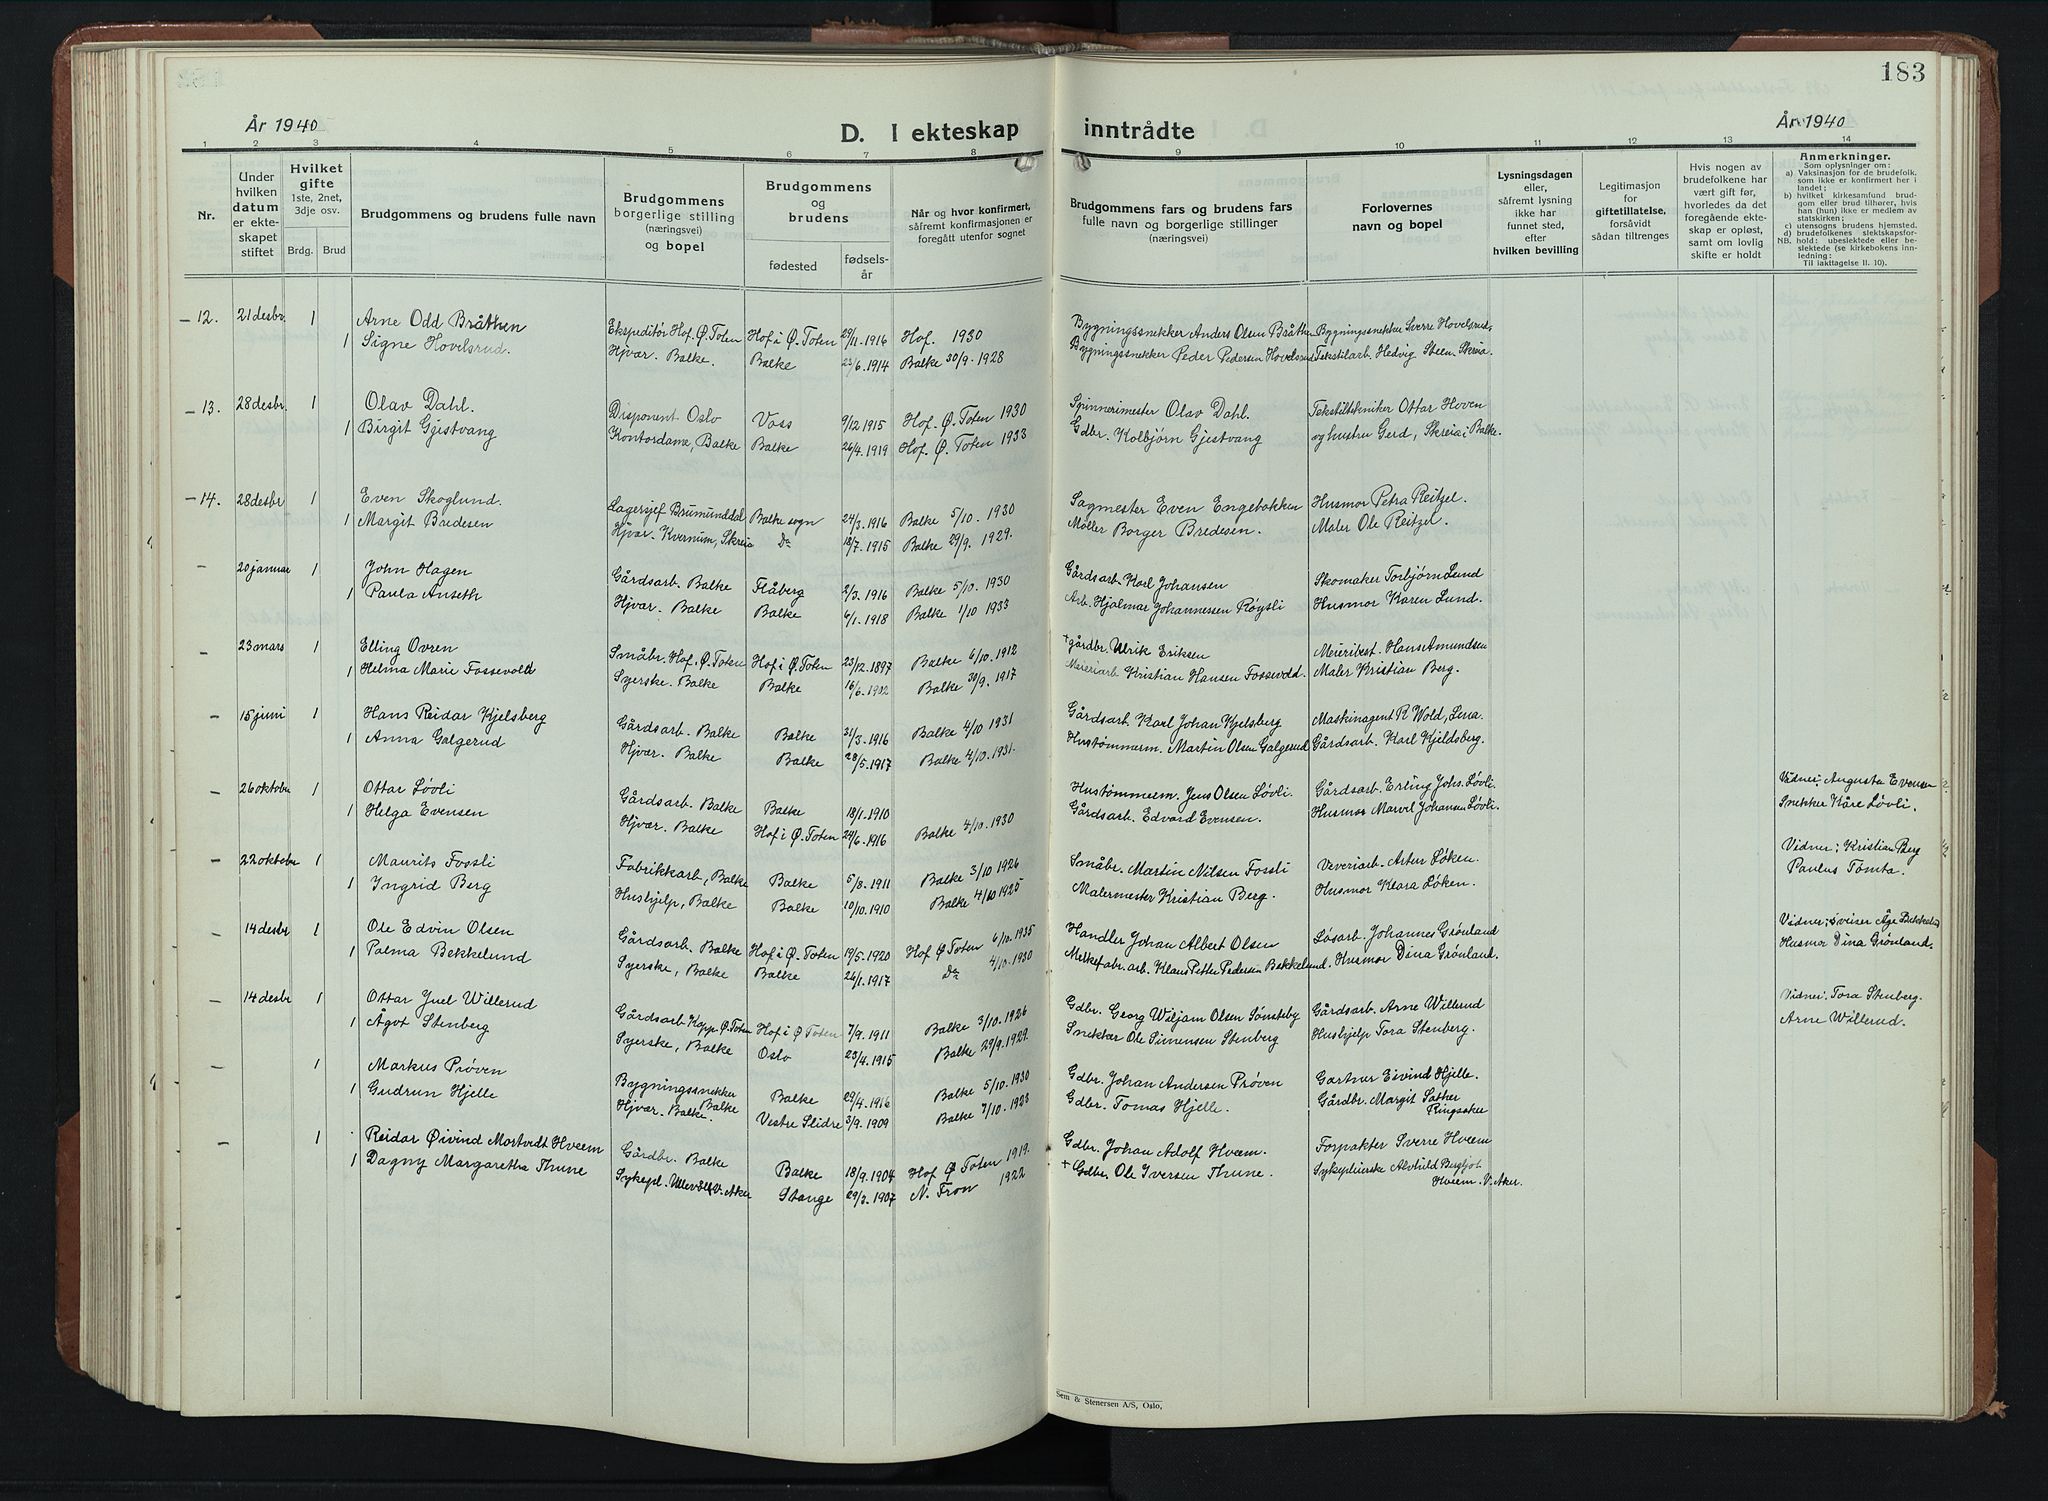 183
År 1940
D. I ekteskap inntrådte
År 1940
1 2 3 4 5 6 7 8 9 10 11 12 13 14
Nr.
Under hvilken datum er ekteskapet stiftet
Hvilket gifte 1ste, 2net, 3dje osv.
Brdg. Brud
Brudgommens og brudens fulle navn
Brudgommens borgerlige stilling (næringsvei) og bopel
Brudgommens og brudens
fødested
fødselsår
Når og hvor konfirmert, såfremt konfirmasjonen er foregått utenfor sognet
Brudgommens fars og brudens fars fulle navn og borgerlige stillinger (næringsvei)
Forlovernes navn og bopel
Lysningsdagen eller, såfremt lysning ikke har funnet sted, efter hvilken bevilling
Legitimasjon for giftetillatelse, forsåvidt sådan tiltrenges
Hvis nogen av brudefolkene har vært gift før, hvorledes da det foregående ekteskap er opløst, samt om lovlig skifte er holdt
Anmerkninger.
Som oplysninger om:
a) Vaksinasjon for de brudefolk, som ikke er konfirmert her i landet;
b) hvilket kirkesamfund brudgom eller brud tilhører, hvis han (hun) ikke er medlem av statskirken;
c) utensogns brudens hjemsted.
d) brudefolkenes slektskapsforhold: ubeslektede eller beslektede (se kirkebokens innledning:
NB.
Til iakttagelse II. 10).
— 12. 21 desbr. 1 Arne Odd Bråthen Ekspeditør Hof. Ø. Toten Hof i Ø. Toten 29/11. 1916 Hof. 1930 Bygningssnekker Anders Olsen Bråthen Bygningssnekker Sverre Hovelsrud,
1 Signe Hovelsrud. Hjvær. Balke. Balke 23/6. 1914 Balke 30/9. 1928 Bygningssnekker Peder Pedersen Hovelsrud Tekstilarb. Hedvig Steen Skreia.
— 13. 28 desbr. 1 Olav Dahl. Disponent Oslo Voss 9/12. 1915 Hof. Ø. Toten 1930 Spinnerimester Olav Dahl. Tekstiltekniker Ottar Hoven
1 Birgit Gjestvang Kontordame, Balke Balke 26/4. 1919 Hof. Ø. Toten 1933 Gdbr. Kolbjørn Gjestvang og hustru Gerd, Skreia i Balke.
— 14. 28 desbr 1 Even Skoglund. Lagersjef Brumunddal Balke sogn 24/3. 1916 Balke 5/10. 1930 Sagmester Even Engebakken Husmor Petra Reitzel.
1 Margit Bredesen Hjvær. Kvernum, Skreia Do 18/7. 1915 Balke 29/9. 1929. Møller Borger Bredesen. Maler Ole Reitzel.
— 20 januar 1 John Hagen Gårdsarb. Balke Flåberg 2/3. 1916 Balke 5/10. 1930 Gårdsarb. Karl Johansen Skomaker Torbjørn Lund
1 Paula Anseth Hjvær. Balke Balke 6/1. 1918 Balke 1/10 1933 Arb. Hjalmar Johannessen Røysli Husmor Karen Lund.
— 23 mars 1 Elling Ovren Småbr. Hof. Ø. Toten Hof i Ø. Toten 23/12. 1897 Balke 6/10. 1912 + gårdbr. Ulrik Eriksen Meieribest. Hans Amundsen
1 Helma Marie Fossevold Syerske. Balke Balke 16/6. 1902 Balke 30/9. 1917 Meieriarb. Kristian Hansen Fossevold. Maler Kristian Berg.
— 15 juni 1 Hans Reidar Kjelsberg Gårdsarb. Balke Balke 31/3. 1916 Balke 4/10 1931 Gårdsarb. Karl Johan Kjelsberg Maskinagent R Wold, Lena.
1 Anna Galgerud Hjvær. Balke Balke 28/5. 1917 Balke 4/10. 1931. Hustømmerm. Martin Olsen Galgerud Gårdsarb. Karl Kjeldsberg.
— 26 oktober 1 Ottar Løvli Gårdsarb. Balke Balke 18/1. 1910 Hustømmerm. Jens Olsen Løvli. Gårdsarb. Erling Johs. Løvli. Vidner: Augusta Evensen
1 Helga Evensen Hjvær. Balke Hof i Ø. Toten 24/6. 1916 Balke 4/10. 1930 Gårdsarb. Edvard Evensen. Husmor Marvel Johansen Løvli. Snekker Kåre Løvli.
— 22 oktober 1 Maurits Fossli Fabrikkarb, Balke Balke 5/8. 1911 Balke 3/10 1926 Småbr. Martin Nilsen Fossli Veveriarb. Artur Løken. Vidner: Kristian Berg
1 Ingrid Berg Hushjelp, Balke Balke 10/10. 1910 Balke 4/10 1925 Malermester Kristian Berg. Husmor Klara Løken. Paulus Tømta.
— 14 desbr 1 Ole Edvin Olsen Gårdsarb. Balke Hof i Ø. Toten 19/5. 1920 Hof Ø Toten 6/10. 1935 Handler Johan Albert Olsen Løsarb. Johannes Grønland Vidner: sveiser Åge Bekkelund
1 Palma Bekkelund Syerske, Balke Balke 26/1. 1917 Do 4/10. 1930 Melkefabr. arb. Klaus Petter Pedersen Bekkelund. Husmor Dina Grønland. Husmor Dina Grønland.
— 14 desbr 1 Ottar Juel Willerud Gårdsarb. Kapp Ø. Toten Hof i Ø Toten 7/9. 1911 Balke 3/10. 1926 Gdbr. Georg Wiljam Olsen Sønsteby Gårdsarb. Arne Willerud Vidner: Tora Stenberg.
1 Ågot Stenberg Syerske, Balke Oslo 23/4. 1915 Balke 29/9. 1929. Snekker Ole Simensen Stenberg Hushjelp Tora Stenberg. Arne Willerud.
— 1 Markus Prøven Bygningssnekker Balke Balke 29/4. 1916 Balke 5/10. 1930 Gdbr. Johan Andersen Prøven Gartner Eivind Hjelle.
1 Gudrun Hjelle Hjvær. Balke. Vestre Slidre 3/9. 1909 Balke 7/10. 1923 Gdbr. Tomas Hjelle. Gårdbr. Margit Sæther Ringsaker
— 1 Reidar Øivind Mortvedt Hveem Gårdbr. Balke Balke 18/9. 1904 Hof Ø Toten 1919. Gdbr. Johan Adolf Hveem. Forpakter Sverre Hveem
1 Dagny Margaretha Thune Sykepl. Ullevål V. Aker Stange 29/3. 1907 N. Fron 1922 + Gdbr. Ole Iversen Thune. Sykepleierske Alvhild Bergljot Hveem. V. Aker.
Sem & Stenersen A/S, Oslo.